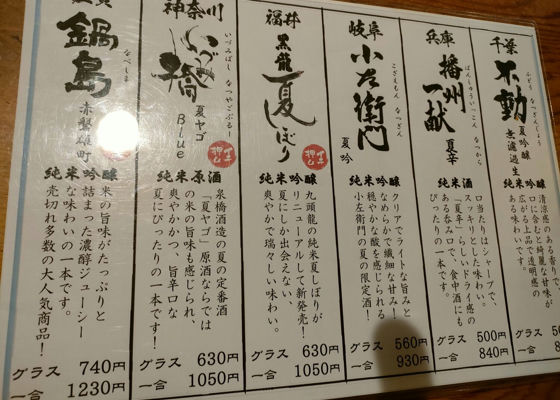 千葉
ふどう なつぎんじょう
不動
夏吟醸
無濾過生
純米吟醸
500円
840円
兵庫
ばんしゅういっこん なつから
播州一献
夏辛
純米吟醸
口当たりはシャープで、
スッキリとした味わい。
「夏辛」らしいドライ感の
ある呑み口で、食中酒にも
ぴったりの一本です。
グラス 500円
一合 840円
岐阜
こざえもん なつぎん
小左衛門
夏吟
純米吟醸
クリアでライトな旨みと
なめらかで繊細な甘み!
穏やかな酸を感じられる
小左衛門の夏の限定酒!
グラス 560円
一合 930円
福井
黒龍
夏しぼり
押し
純米吟醸
九頭龍の純米夏しぼりが
リニューアルして新発売!
夏にしか出会えない、
爽やかで瑞々しい味わい。
グラス 630円
一合 1050円
神奈川
いづみばし なつやごぶるー
いづみ橋
夏ヤゴ
Blue
押し
純米原酒
泉橋酒造の夏の定番酒
「夏ヤゴ」原酒ならでは
の米の旨味も感じられ
爽やかかつ、旨辛口な
夏にぴったりの一本です!
グラス 630円
一合 1050円
佐賀
なべしま
鍋島
赤磐雄町
純米吟醸
米の旨味がたっぷりと
詰まった濃醇ジューシー
な味わいの一本です。
売切れ多数の大人気商品!
グラス 740円
一合 1230円